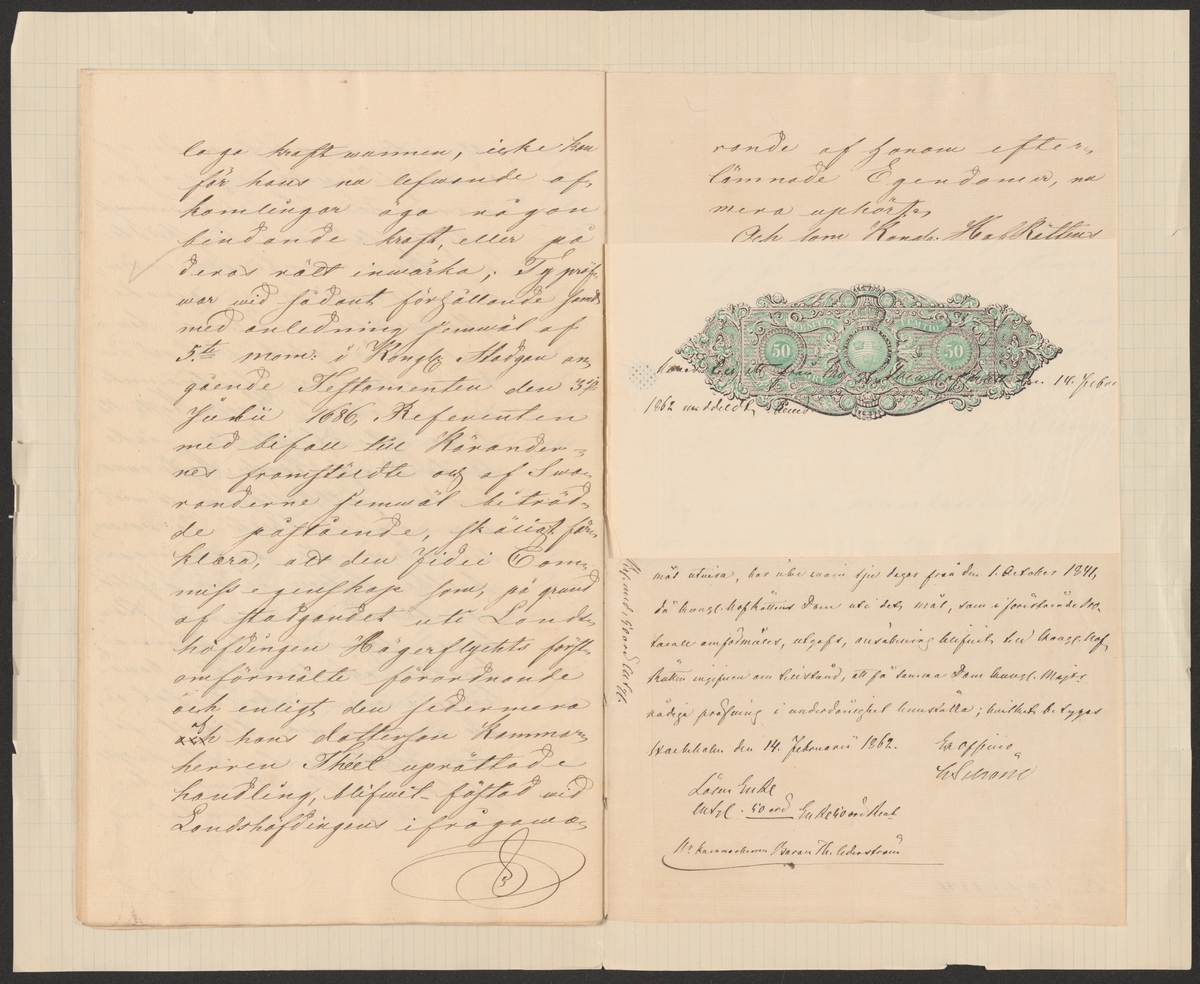 laga kraft wunnen, icke kan
för hans nu lefwande af-
komlingar äga någon
bindande kraft, eller på
deras rätt inwärka; Ty pröf-
war wid sådant förhållande
med anledning jemwäl af
5.te mom: i Kongl. Stadgan an-
gående Testamenten den 3
Julii 1686, Referenten
med bifall till Kärander-
nes framstäldte och af Swa-
randerne jemwäl biträd-
de påstående, skäligt för-
klara, att den Fidei Com-
miss egenskap som, på grund
af stadgandet uti Lands-
höfdingen Hägerflychts först-
omförmälte förordnande
och enligt den sedermera
af hans dotterson Kammar-
herren Théel uprättade
handling, blifwit fästad wid
Landshöfdingens ifrågawa-
rande af honom efter-
lämnade Egendomar, nu
mera uphört.
Och som Kongl. HofRättens
50 50
den 14. Febru
1862 meddeldt
mål utvisa, har
från den 1. October 1841,
då Kongl. HofRättens Dom uti det mål, som i förestående Pro-
tocoll omförmäles, utgafs, ansökning blifvit till Kongl. Hof
Rätten ingifven om tillstånd, att få samma Dom Kongl. Majts
nådiga pröfning i underdånighet hemställa; hvilket betygas
Stockholm den 14. Februarii 1862. Ex officio
Lösen Enke
Hr Kammarherren Baron Th. Cederström